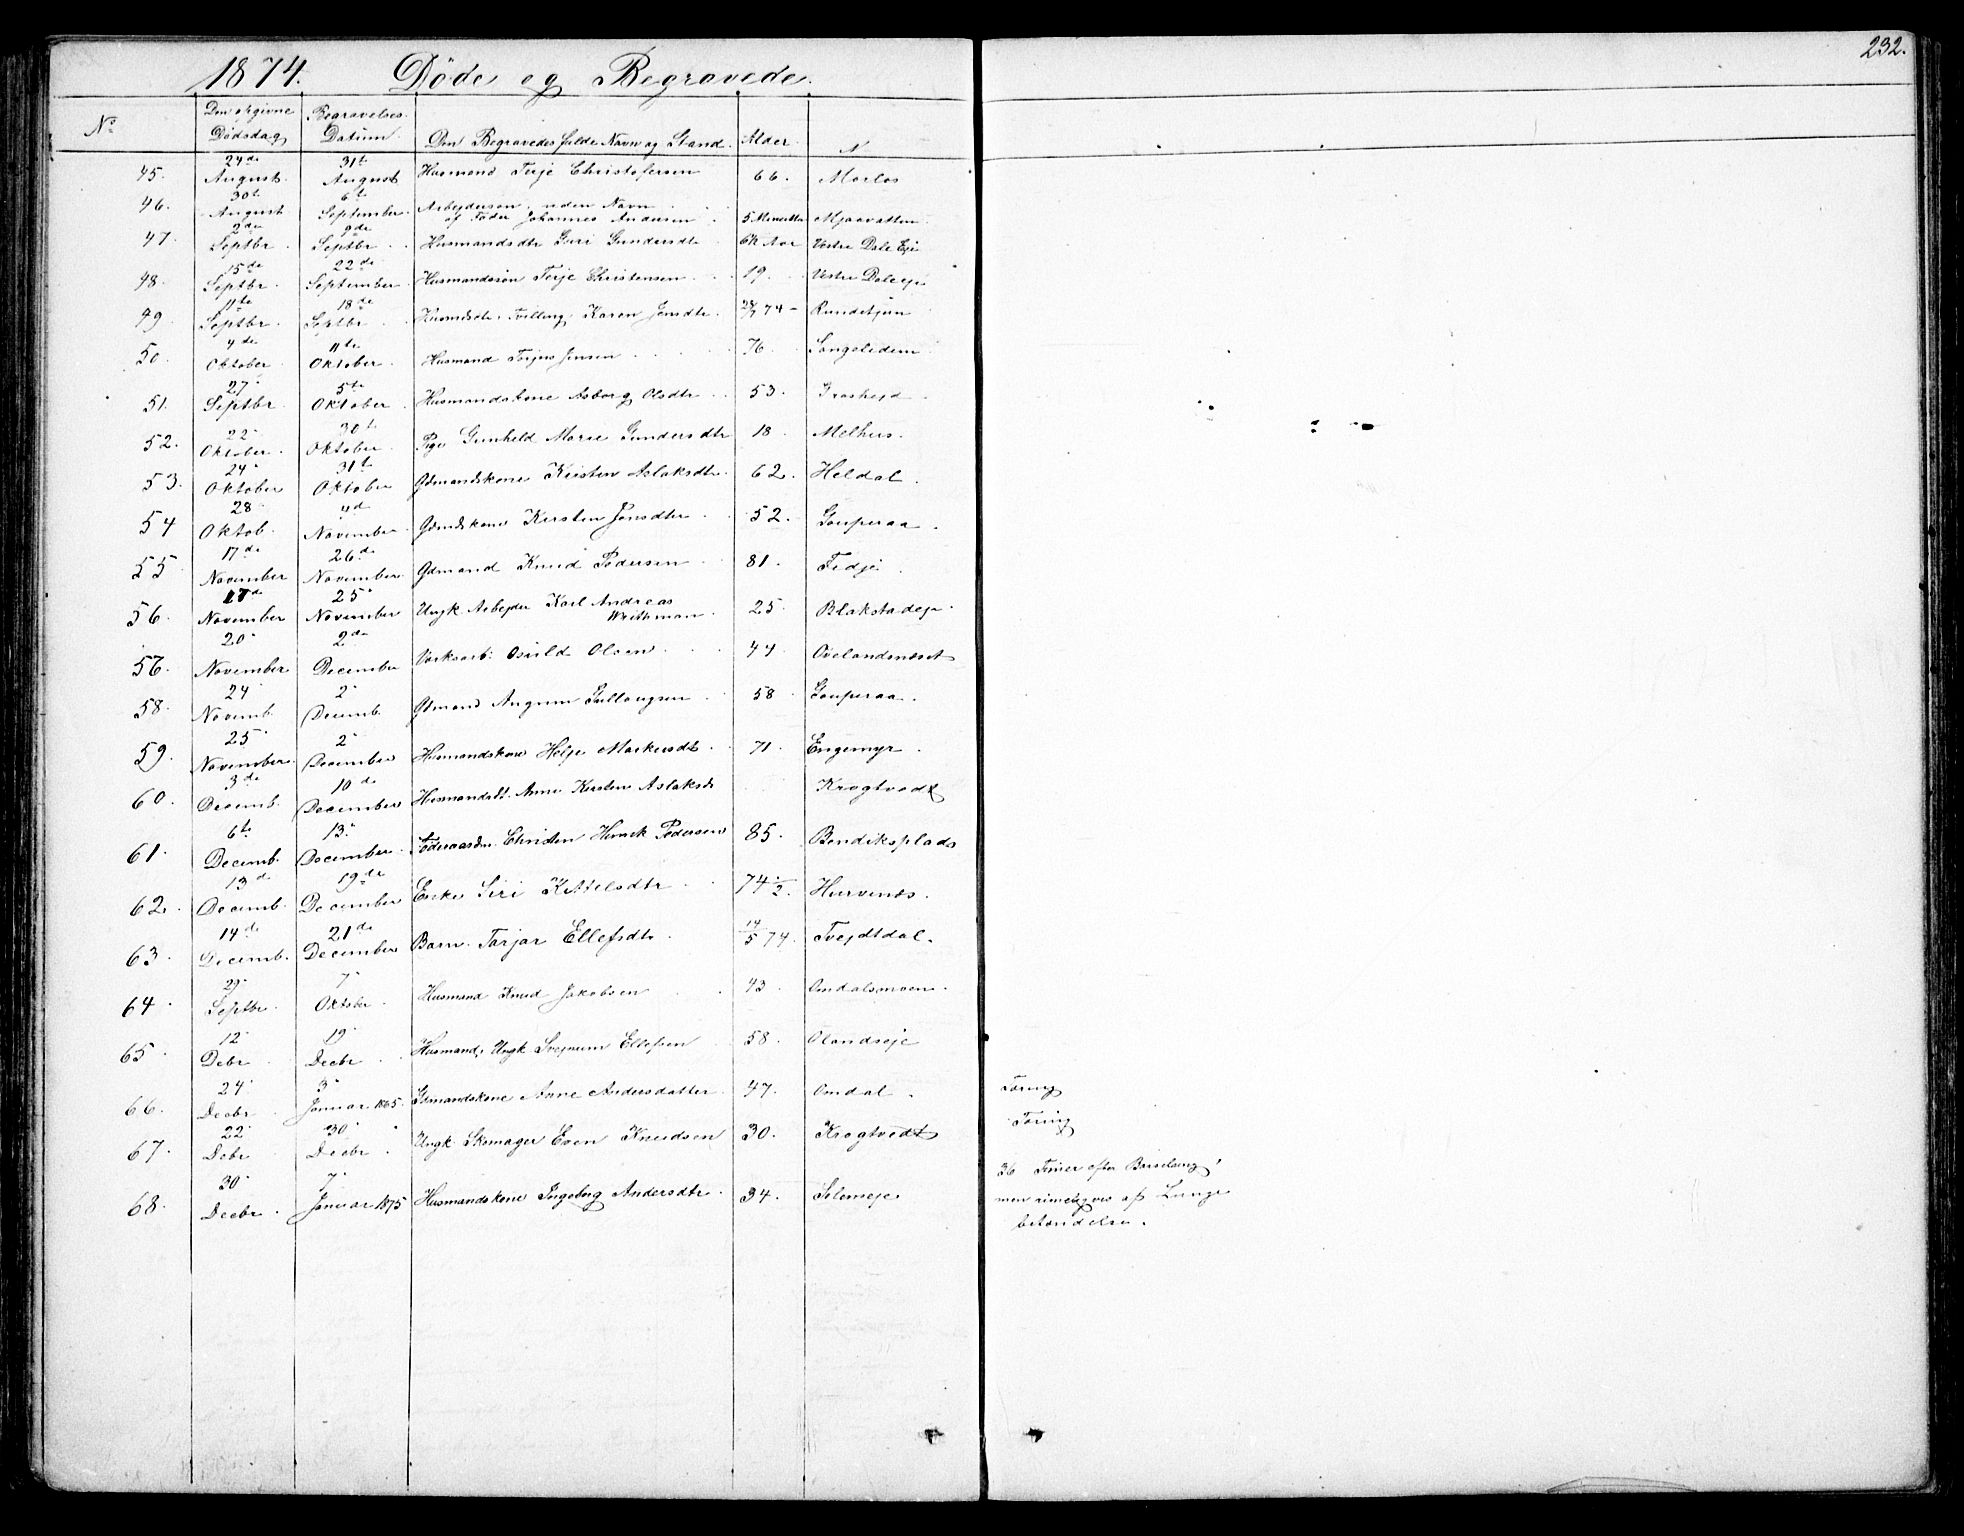 232.
1874. Døde og Begravede.
No Den opgivne Dødsdag Begravelses Datum. Den Begravedes fulde Navn og Stand. Alder. N
45. 24de August. 31te August Husmand Terje Christofersen 66. Morlos
46. 30te August 6te September Arbejdersøn uden Navn
af Fader Johannes Andersen 5 Minutter Mjaavatten
47. 2den Septbr. 9de Septbr Husmandsdtr Guri Gundersdtr 6½ Aar Vestre Dale Eje
48. 15de Septbr. 22de September Husmandssøn Terje Christensen 19. Vestre Dale eje
49. 11te Septbr. 18de Septbr Tvilling Karen Jensdtr. 74 - Rundetjun
50. 4de Oktober 11te Oktober. Husmand Terjus Jensen 76. Songeledem
51. 27. Septbr. 5te Oktober Husmandskone Asborg Olsdtr 53. Grashejd.
52. 22. Oktober. 30te Oktober. Pige Gunhild Marie Gundersdtr 18 Melhus.
53. 24. Oktober 31te Oktober Gdmandskone Kirsten Aslaksdtr. 62. Heldal.
54 28 Oktob. 4de November Gdmdskone Kirsten Jensdtr 52. Gouperaa.
55. 17de November 26de November. Gdmand Knud Pedersen 81. Fidje.
56. 17de November 25. November Ungk Arbejder Karl Andreas
Writhman 25. Blakstadeje.
57. 20. November. 2den December Verksarb: Osuld Olsen 44 Ovelandsneset
58. 24. Novemb. 2. Decemb. Gdmand Angrim Tellougsen 58 Gouperaa.
59. 25. November. 2. December Husmandskone Helje Markusdtr. 71. Engemyr.
60. 3de Decemb. 10de December Husmandsdt. Anne Kirsten Aslaksdr Krogtvedt
61. 6te Decemb. 13. December. Føderaadm. Christen Henrik Pedersen 85. Bendiksplads
62. 13de Decemb. 19de December Enke Siri Kittelsdtr 74½. Hurvenes.
63. 14de Decemb. 21de December Barn Tarjar Ellefsdtr. 14/5 74. Tvejtdal.
64. 29. Septbr. 7. Oktober. Husmand Knud Jakobsen 43. Omdalsmoen.
65. 12. Debr 19. Decbr. Husmand, Ungk Svejnum Ellefsen 58. Olandseje
66. 24. Decbr. 3. Januar 1865. Gdmandskone Anne Andersdatter. 47. Omdal. Tæring
67. 22. Debr. 30. Decbr. Ungk Skomager Even Knudsen 30. Krogtvedt Tæring
68. 30. Decbr. 7. Januar 1875 Husmandskone Ingeborg Andersdtr. 34. Selemeje 36 Timer efter Barselseng,
men rimeligvis af Lunge
betændelse.